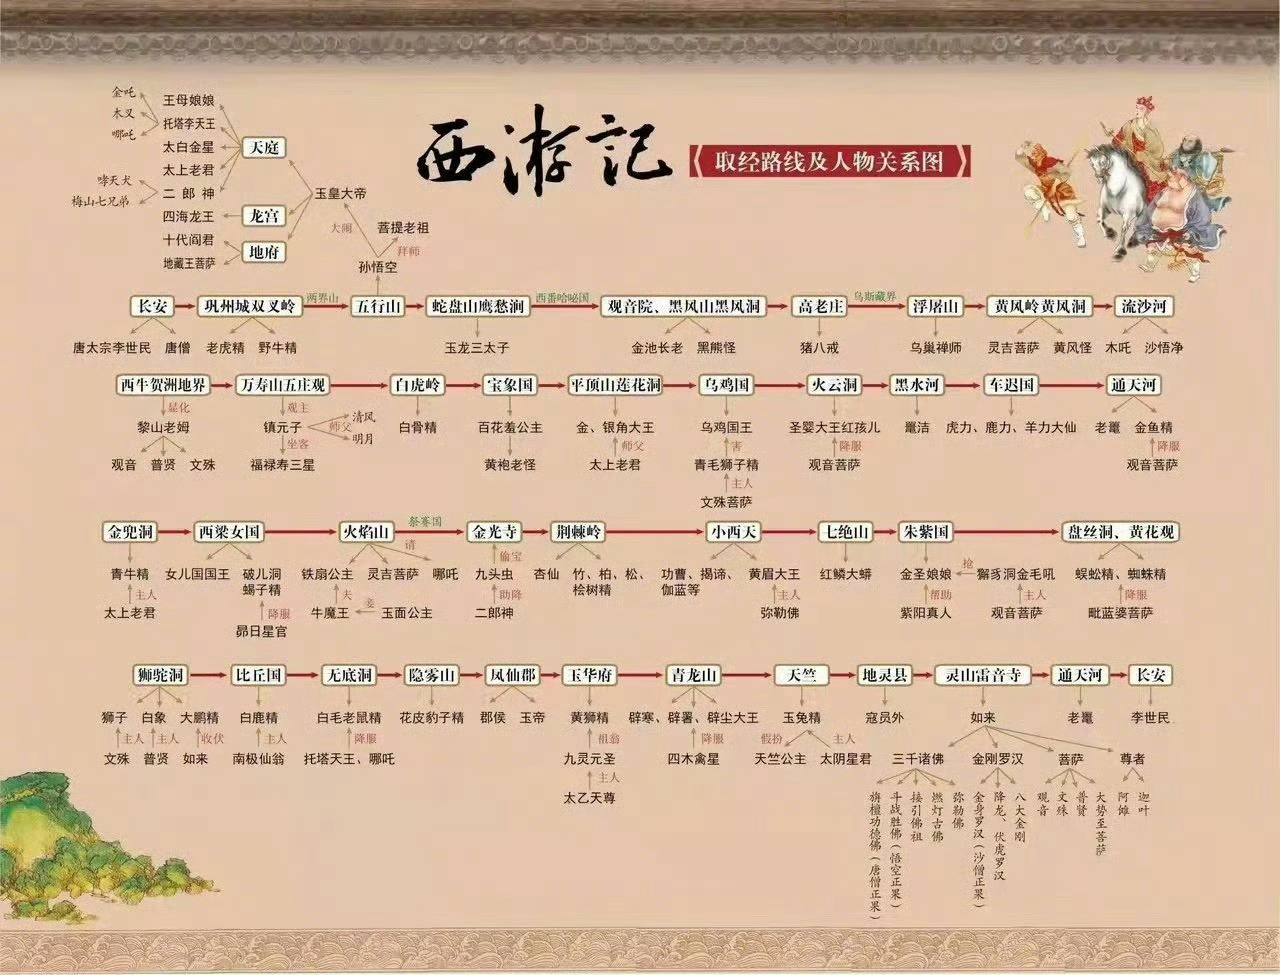 西游记
取经路线及人物关系图
金吒
木叉
哪吒
王母娘娘
托塔李天王
太白金星
太上老君
二郎神
哮天犬
梅山七兄弟
天庭
四海龙王
龙宫
十代阎君
地藏王菩萨
地府
玉皇大帝
大闹
菩提老祖
拜师
孙悟空
长安
巩州城双叉岭
两界山
五行山
蛇盘山鹰愁涧
西番哈咇国
观音院、黑风山黑风洞
高老庄
乌斯藏界
浮屠山
黄风岭黄风洞
流沙河
唐太宗李世民
唐僧
老虎精
野牛精
玉龙三太子
金池长老
黑熊怪
猪八戒
乌巢禅师
灵吉菩萨
黄风怪
木吒
沙悟净
西牛贺洲地界
万寿山五庄观
白虎岭
宝象国
平顶山莲花洞
乌鸡国
火云洞
黑水河
车迟国
通天河
显化
观主
黎山老姆
镇元子
师父
清风
明月
白骨精
百花羞公主
金、银角大王
乌鸡国王
圣婴大王红孩儿
鼍洁
虎力、鹿力、羊力大仙
老鼋
金鱼精
坐客
师父
害
降服
降服
观音
普贤
文殊
福禄寿三星
黄袍老怪
太上老君
青毛狮子精
观音菩萨
观音菩萨
主人
文殊菩萨
金兜洞
西梁女国
火焰山
祭赛国
金光寺
荆棘岭
小西天
七绝山
朱紫国
盘丝洞、黄花观
请
偷宝
抢
青牛精
女儿国国王
破儿洞
蝎子精
铁扇公主
灵吉菩萨
哪吒
九头虫
杏仙
竹、柏、松、
桧树精
功曹、揭谛、
伽蓝等
黄眉大王
红鳞大蟒
金圣娘娘
獬豸洞金毛吼
蜈蚣精、蜘蛛精
主人
降服
夫
妾
助降
主人
帮助
主人
降服
太上老君
昴日星官
牛魔王
玉面公主
二郎神
弥勒佛
紫阳真人
观音菩萨
毗蓝婆菩萨
狮驼洞
比丘国
无底洞
隐雾山
凤仙郡
玉华府
青龙山
天竺
地灵县
灵山雷音寺
通天河
长安
狮子
白象
大鹏精
白鹿精
白毛老鼠精
花皮豹子精
郡侯
玉帝
黄狮精
辟寒、辟署、辟尘大王
玉兔精
寇员外
如来
老鼋
李世民
主人
主人
收伏
主人
降服
祖翁
降服
假扮
主人
文殊
普贤
如来
南极仙翁
托塔天王、哪吒
九灵元圣
四木禽星
天竺公主
太阴星君
三千诸佛
金刚罗汉
菩萨
尊者
主人
太乙天尊
旃檀功德佛（唐僧正果）
斗战胜佛（悟空正果）
接引佛祖
燃灯古佛
弥勒佛
金身罗汉（沙僧正果）
降龙、伏虎罗汉
八大金刚
观音
文殊
普贤
大势至菩萨
阿傩
迦叶